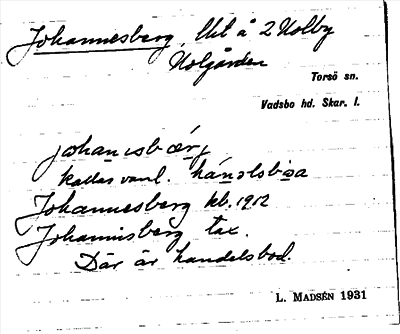 Johannesberg, Ut å 2 Nolby
Nolgården
Torsö sn.
Vadsbo hd. Skar. l.
johanısbærj
kallas vanl. hándlsbúa
Johannesberg kb. 1912
Johannisberg tax.
Där är handelsbod.
L. MADSÉN 1931